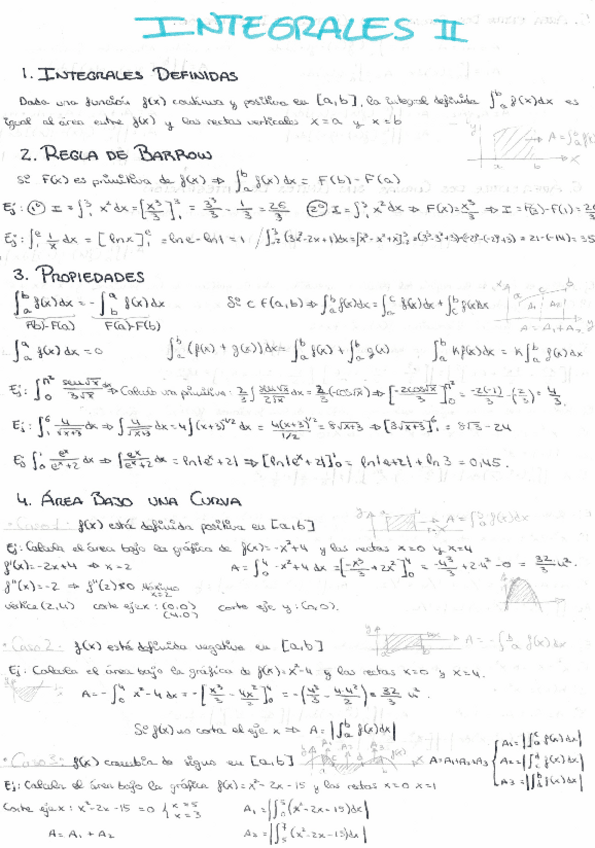 INTEGRALES II
1. INTEGRALES DEFINIDAS
Dada una función f(x) continua y positiva en [a,b], la integral definida ∫ₐᵇ f(x)dx es
igual al área entre f(x) y las rectas verticales x=a y x=b
2. REGLA DE BARROW
Si F(x) es primitiva de f(x) ⇒ ∫ₐᵇ f(x)dx = F(b)-F(a)
Ej: 1º I = ∫₁³ x²dx = [x³/3]₁³ = 3³/3 - 1/3 = 26/3 2º I = ∫₁³ x²dx ⇒ F(x)=x³/3 ⇒
Ej: ∫₁ᵉ 1/x dx = [lnx]₁ᵉ = lne - ln1 = 1 / ∫₋₂³ (3x²-2x+1)dx = [x³-x²+x]₋₂³ = = 21-(-14) = 35
3. PROPIEDADES
∫ₐᵇ f(x)dx = -∫ᵇₐ f(x)dx Si c ∈ (a,b) ⇒ ∫ₐᵇ f(x)dx = ∫ₐᶜ f(x)dx + ∫꜀ᵇ f(x)dx
F(b)-F(a) F(a)-F(b) A = A₁+A₂
∫ₐᵃ f(x)dx = 0 ∫ₐᵇ (f(x) + g(x))dx = ∫ₐᵇ f(x) + ∫ₐᵇ g(x) ∫ₐᵇ Kf(x)dx = K∫ₐᵇ f(x)dx
Ej: ∫₀^π² sen√x/3√x dx ⇒ Calculo una primitiva: 2/3 ∫ sen√x/2√x dx = 2/3 (-cos√x) ⇒ [-2cos√x/3]₀^π² = -2(-1)/3 - (-2/3) = 4/3.
Ej: ∫₁⁶ 4/√x+3 dx ⇒ ∫ 4/√x+3 dx = 4(x+3)^1/2/1/2 = 8√x+3 ⇒ [8√x+3]₁⁶ =
Ej ∫₀¹ eˣ/eˣ+2 dx ⇒ ∫ eˣ/eˣ+2 dx = ln|eˣ+2| ⇒ [ln|eˣ+2|]₀¹ = ln|e+2| + ln3 = 0,45.
4. ÁREA BAJO UNA CURVA
· Caso 1: f(x) está definida positiva en [a,b] A = ∫ₐᵇ f(x)dx
Ej: Calcula el área bajo la gráfica de f(x)=-x²+4 y las rectas x=0 y x=4
f'(x)=-2x+4 ⇒ x=2 A = ∫₀⁴ -x²+4 dx = [-x³/3 + 2x²]₀⁴ = -4³/3 + 2·4² - 0 = 32/3 u².
f''(x)=-2 ⇒ f''(2)<0 máximo x=2
vértice (2,4) corte eje x: (0,0) (4,0) corte eje y: (0,0).
· Caso 2: f(x) está definida negativa en [a,b] A = -∫ₐᵇ f(x)dx
Ej: Calcula el área bajo la gráfica de f(x)=x²-4 y las rectas x=0 y x=4.
A = -∫₀⁴ x²-4 dx = -[x³/3 - 4x²/2]₀⁴ = -(4³/3 - 4·4²/2) = 32/3 u².
Si f(x) no corta el eje x ⇒ A = |∫ₐᵇ f(x)dx|
· Caso 3: f(x) cambia de signo en [a,b] A=A₁+A₂+A₃
Ej: Calcula el área bajo la gráfica f(x)=x²-2x-15 y las rectas x=0 x=1
Corte eje x: x²-2x-15=0 { x=5 x=3
A₁ = |∫₀⁵ (x²-2x-15)dx|
A = A₁ + A₂ A₂ = |∫₅⁷ (x²-2x-15)dx|